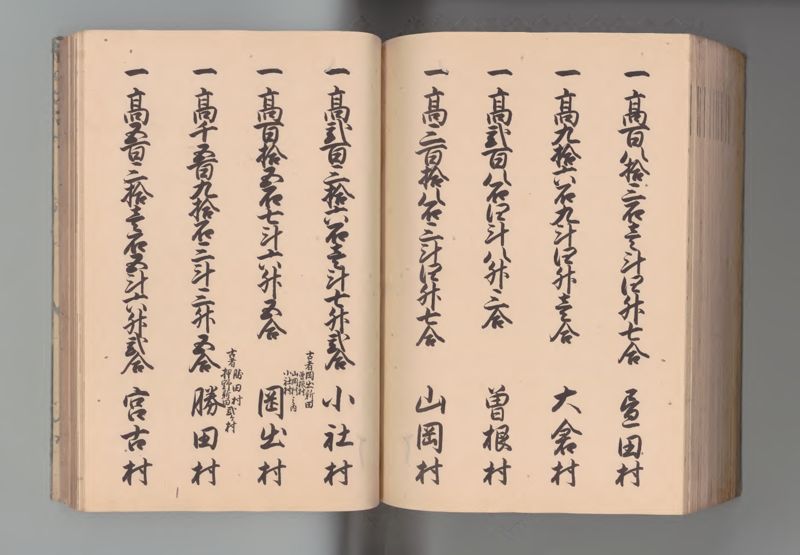 一高百八拾三石壱斗四升七合 田村
一高九拾六石九斗四升壱合 大倉村
一高弐百八石四斗八升三合 曽根村
一高三百拾八石三斗四升七合 山岡村
一高弐百三拾六石壱斗七升弐合 小社村
古者岡出新田
曽根村
山岡村
小社村
之内
一高百拾五石七斗六升五合 岡出村
古者勝田村
押野新田弐ケ村
一高千五百九拾石三斗三升五合 勝田村
一高五百三拾壱石五斗六升弐合 宮古村